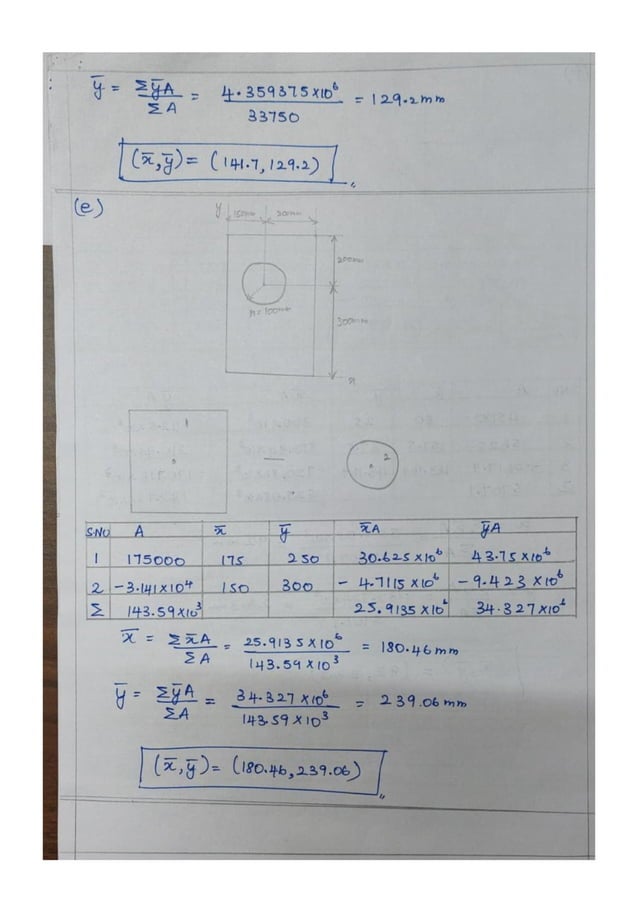 ȳ = ΣȳA / ΣA = 4.359375×10⁶ / 33750 = 129.2mm
(x̄,ȳ) = (141.7,129.2)
(e)
y 150mm 200mm
200mm
r=100mm
300mm
x
1
2
S.NO A x̄ ȳ x̄A ȳA
1 175000 175 250 30.625×10⁶ 43.75×10⁶
2 -3.141×10⁴ 150 300 - 4.7115×10⁶ -9.423×10⁶
Σ 143.59×10³ 25.9135×10⁶ 34.327×10⁶
x̄ = Σx̄A / ΣA = 25.9135×10⁶ / 143.59×10³ = 180.46mm
ȳ = ΣȳA / ΣA = 34.327×10⁶ / 143.59×10³ = 239.06mm
(x̄,ȳ) = (180.46,239.06)